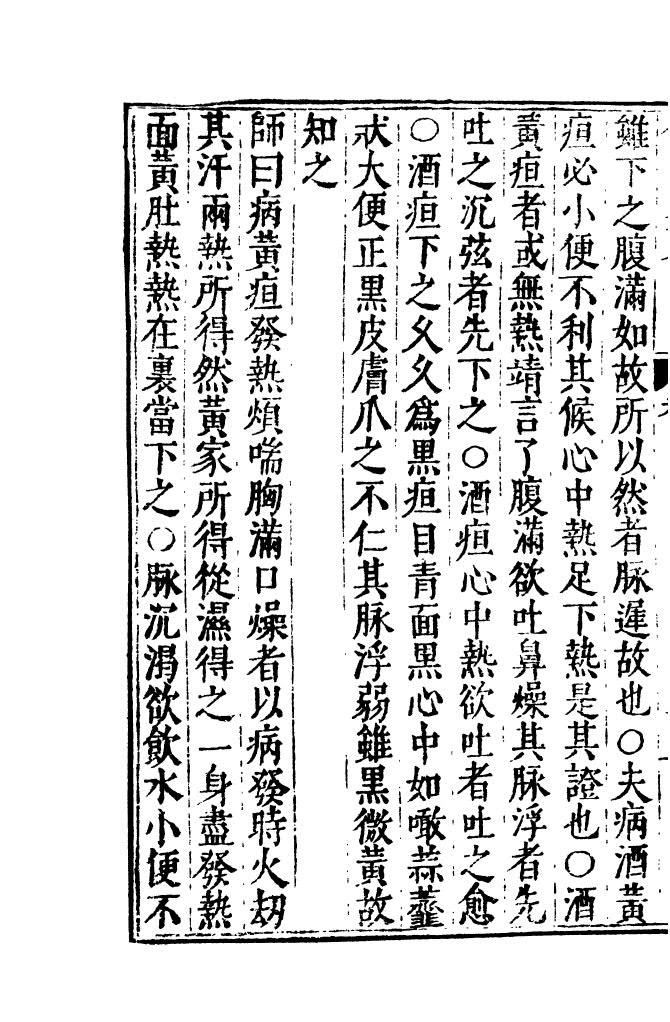 雖下之腹滿如故所以然者脉遲故也○夫病酒黃
疸必小便不利其候心中熱足下熱是其證也○酒
黃疸者或無熱靖言了腹滿欲吐鼻燥其脉浮者先
吐之沉弦者先下之○酒疸心中熱欲吐者吐之愈
○酒疸下之久久爲黑疸目青面黑心中如噉蒜虀
狀大便正黑皮膚爪之不仁其脉浮弱雖黑微黃故
知之
師曰病黃疸發熱煩喘胸滿口燥者以病發時火刼
其汗兩熱所得然黃家所得從濕得之一身盡發熱
面黃肚熱熱在裏當下之○脉沉渴欲飲水小便不